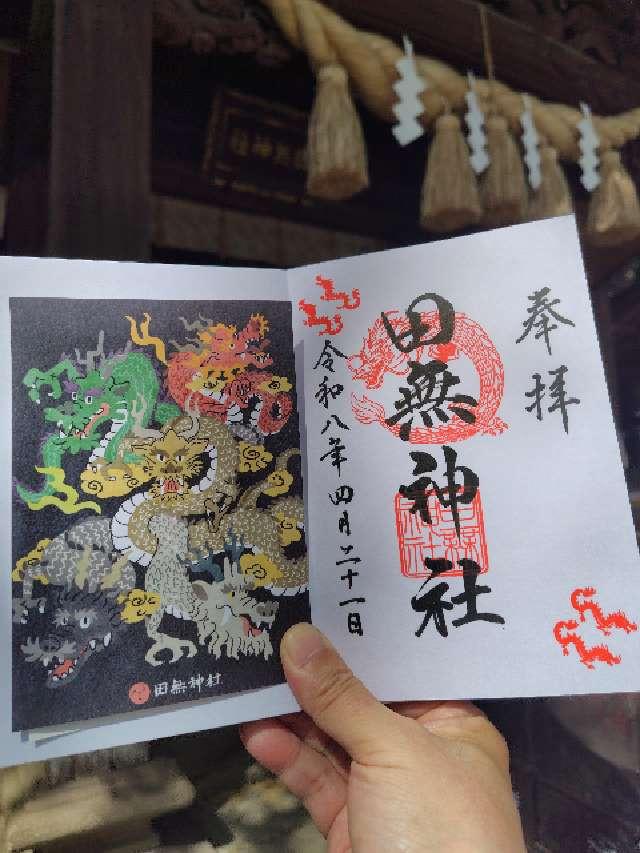 奉拝
田無神社
令和八年四月二十一日
田無神社